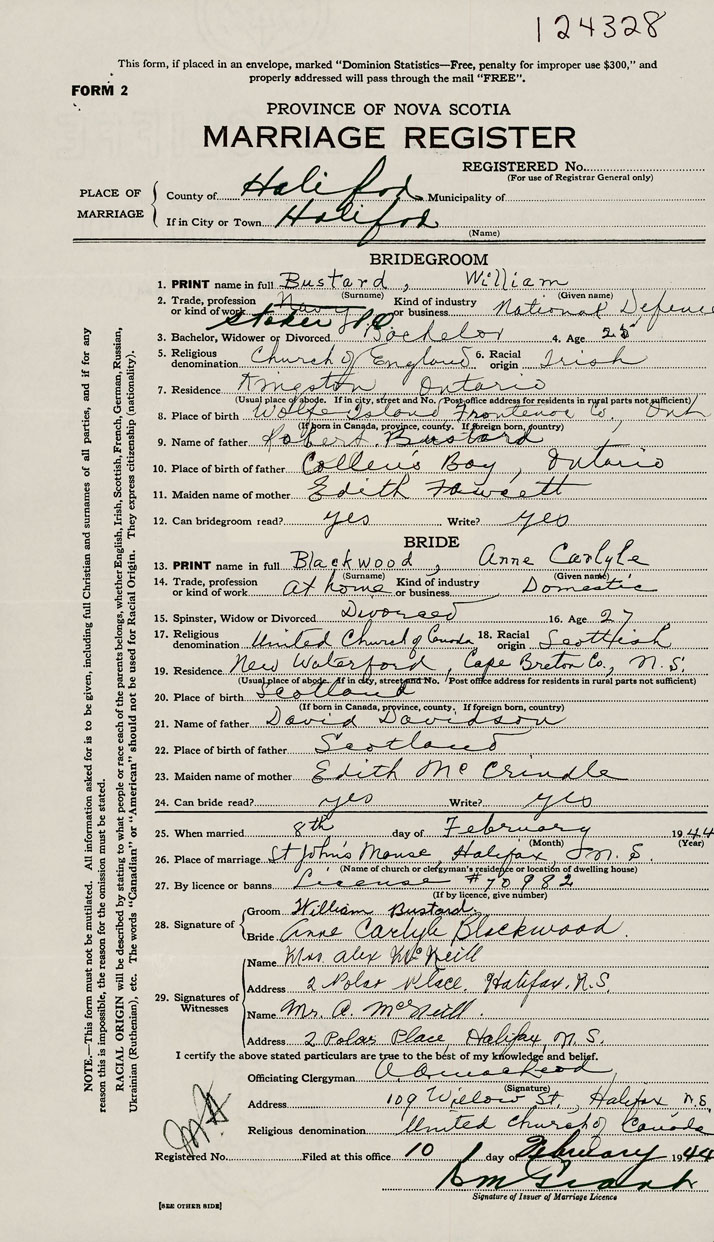 124328
This form, if placed in an envelope, marked “Dominion Statistics—Free, penalty for improper use $300,” and
properly addressed will pass through the mail “FREE”.
FORM 2
PROVINCE OF NOVA SCOTIA
MARRIAGE REGISTER
REGISTERED No.
(For use of Registrar General only)
PLACE OF MARRIAGE
County of Halifax Municipality of
If in City or Town Halifax
(Name)
BRIDEGROOM
1. PRINT name in full Bustard, William
(Surname) (Given name)
2. Trade, profession or kind of work Navy Stoker P.O. Kind of industry or business National Defence
3. Bachelor, Widower or Divorced Bachelor 4. Age 25
5. Religious denomination Church of England 6. Racial origin Irish
7. Residence Kingston, Ontario
(Usual place of abode. If in city, street and No. Post office address for residents in rural parts not sufficient)
8. Place of birth Wolfe Island, Frontenac Co., Ont
(If born in Canada, province, county. If foreign born, country)
9. Name of father Robert Bustard
10. Place of birth of father Collen's Bay, Ontario
11. Maiden name of mother Edith Fawcett
12. Can bridegroom read? yes Write? yes
BRIDE
13. PRINT name in full Blackwood, Anne Carlyle
(Surname) (Given name)
14. Trade, profession or kind of work at home Kind of industry or business Domestic
15. Spinster, Widow or Divorced Divorced 16. Age 27
17. Religious denomination United Church of Canada 18. Racial origin Scottish
19. Residence New Waterford, Cape Breton Co., N.S.
(Usual place of abode. If in city, street and No. Post office address for residents in rural parts not sufficient)
20. Place of birth Scotland
(If born in Canada, province, county. If foreign born, country)
21. Name of father David Davidson
22. Place of birth of father Scotland
23. Maiden name of mother Edith McCrindle
24. Can bride read? yes Write? yes
25. When married 8th day of February 1944
(Month) (Year)
26. Place of marriage St John's Manse, Halifax, N.S.
(Name of church or clergyman's residence or location of dwelling house)
27. By licence or banns License #70982
(If by licence, give number)
28. Signature of
Groom William Bustard
Bride Anne Carlyle Blackwood.
29. Signatures of Witnesses
Name Mrs. Alex McNeill
Address 2 Polar Place. Halifax. N.S.
Name Mr. A. McNeill.
Address 2 Polar Place, Halifax, N.S.
I certify the above stated particulars are true to the best of my knowledge and belief.
Officiating Clergyman
(Signature)
Address 109 Willow St., Halifax N.S.
Religious denomination United Church of Canada
Registered No. Filed at this office 10 day of February 1944
Signature of Issuer of Marriage Licence
[SEE OTHER SIDE]
NOTE.—This form must not be mutilated. All information asked for is to be given, including full Christian and surnames of all parties, and if for any
reason this is impossible, the reason for the omission must be stated.
RACIAL ORIGIN will be described by stating to what people or race each of the parents belongs, whether English, Irish, Scottish, French, German, Russian,
Ukrainian (Ruthenian), etc. The words “Canadian” or “American” should not be used for Racial Origin. They express citizenship (nationality).